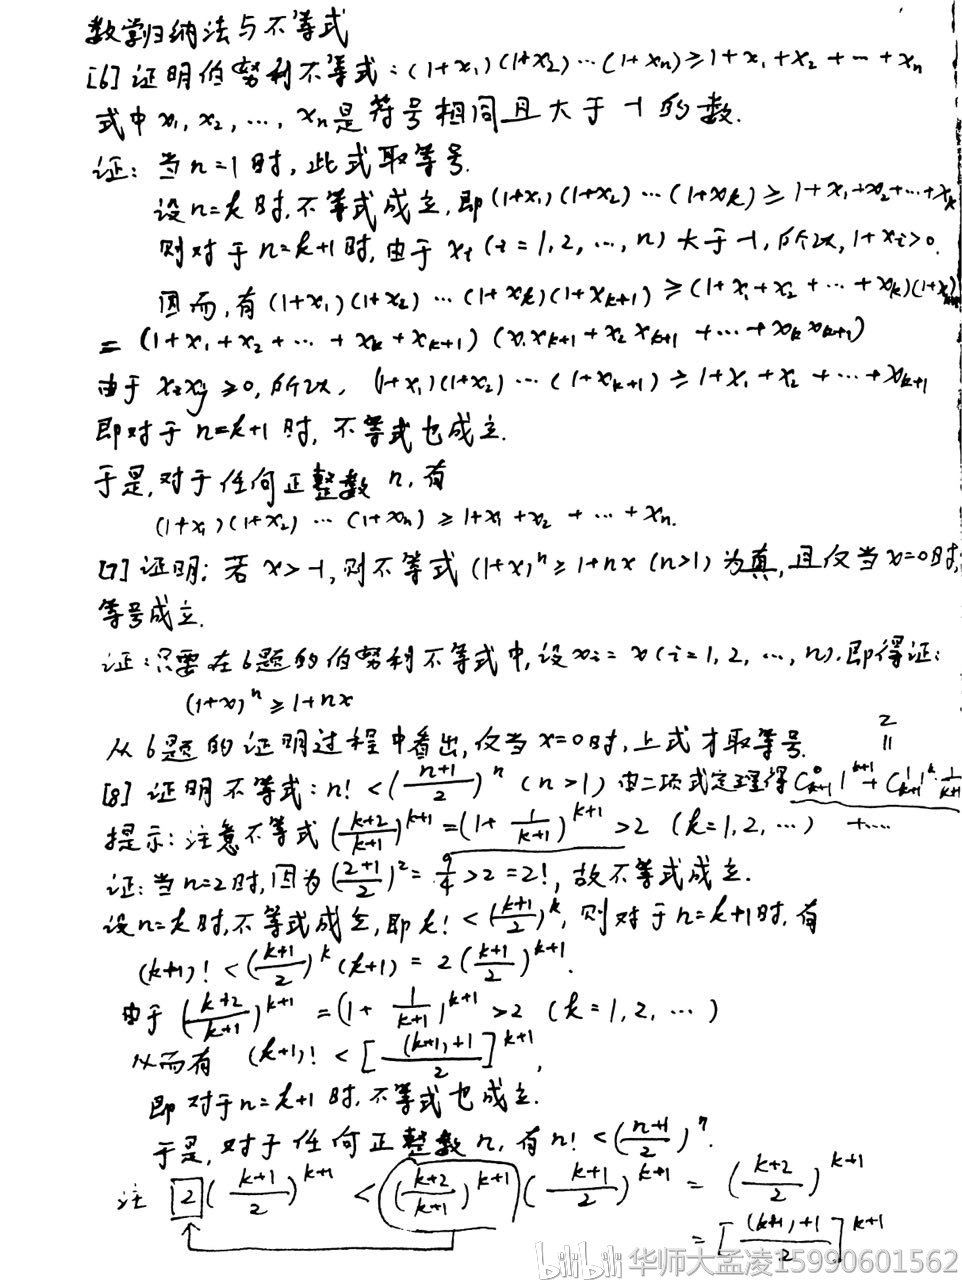 数学归纳法与不等式
[6] 证明伯努利不等式：(1+x₁)(1+x₂)⋯(1+xₙ)≥1+x₁+x₂+⋯+xₙ
式中 x₁, x₂, ⋯, xₙ是符号相同且大于-1的数.
证：当n=1时，此式取等号.
设n=k时，不等式成立，即(1+x₁)(1+x₂)⋯(1+xₖ)≥1+x₁+x₂+⋯+xₖ
则对于n=k+1时，由于 xᵢ (i=1,2,⋯,n) 大于-1，所以，1+xᵢ>0.
因而，有(1+x₁)(1+x₂)⋯(1+xₖ)(1+xₖ₊₁)≥(1+x₁+x₂+⋯+xₖ)(1+xₖ₊₁)
=(1+x₁+x₂+⋯+xₖ+xₖ₊₁)(x₁xₖ₊₁+x₂xₖ₊₁+⋯+xₖxₖ₊₁)
由于 xᵢxⱼ≥0，所以，(1+x₁)(1+x₂)⋯(1+xₖ₊₁)≥1+x₁+x₂+⋯+xₖ₊₁
即对于n=k+1时，不等式也成立.
于是，对于任何正整数n，有
(1+x₁)(1+x₂)⋯(1+xₙ)≥1+x₁+x₂+⋯+xₙ.
[7] 证明：若x>-1，则不等式(1+x)ⁿ≥1+nx (n>1)为真，且仅当x=0时，
等号成立.
证：只要在6题的伯努利不等式中，设xᵢ=x(i=1,2,⋯,n).即得证：
(1+x)ⁿ≥1+nx
从6题的证明过程中看出，仅当x=0时，上式才取等号.
2
=
[8] 证明不等式：n!<((n+1)/2)ⁿ (n>1) 由二项式定理得 C⁰ₖ₊₁1ᵏ⁺¹+C¹ₖ₊₁1ᵏ·1/(k+1)
+⋯
提示：注意不等式((k+2)/(k+1))ᵏ⁺¹=(1+1/(k+1))ᵏ⁺¹>2 (k=1,2,⋯)
证：当n=2时，因为((2+1)/2)²=9/4>2=2!，故不等式成立.
设n=k时，不等式成立，即k!<((k+1)/2)ᵏ，则对于n=k+1时，有
(k+1)!<((k+1)/2)ᵏ(k+1)=2((k+1)/2)ᵏ⁺¹.
由于((k+2)/(k+1))ᵏ⁺¹=(1+1/(k+1))ᵏ⁺¹>2 (k=1,2,⋯)
从而有 (k+1)!<[((k+1)+1)/2]ᵏ⁺¹，
即对于n=k+1时，不等式也成立.
于是，对于任何正整数n，有n!<((n+1)/2)ⁿ.
注 2((k+1)/2)ᵏ⁺¹<((k+2)/(k+1))ᵏ⁺¹((k+1)/2)ᵏ⁺¹=((k+2)/2)ᵏ⁺¹
=[((k+1)+1)/2]ᵏ⁺¹
bilibili 华师大孟凌15990601562